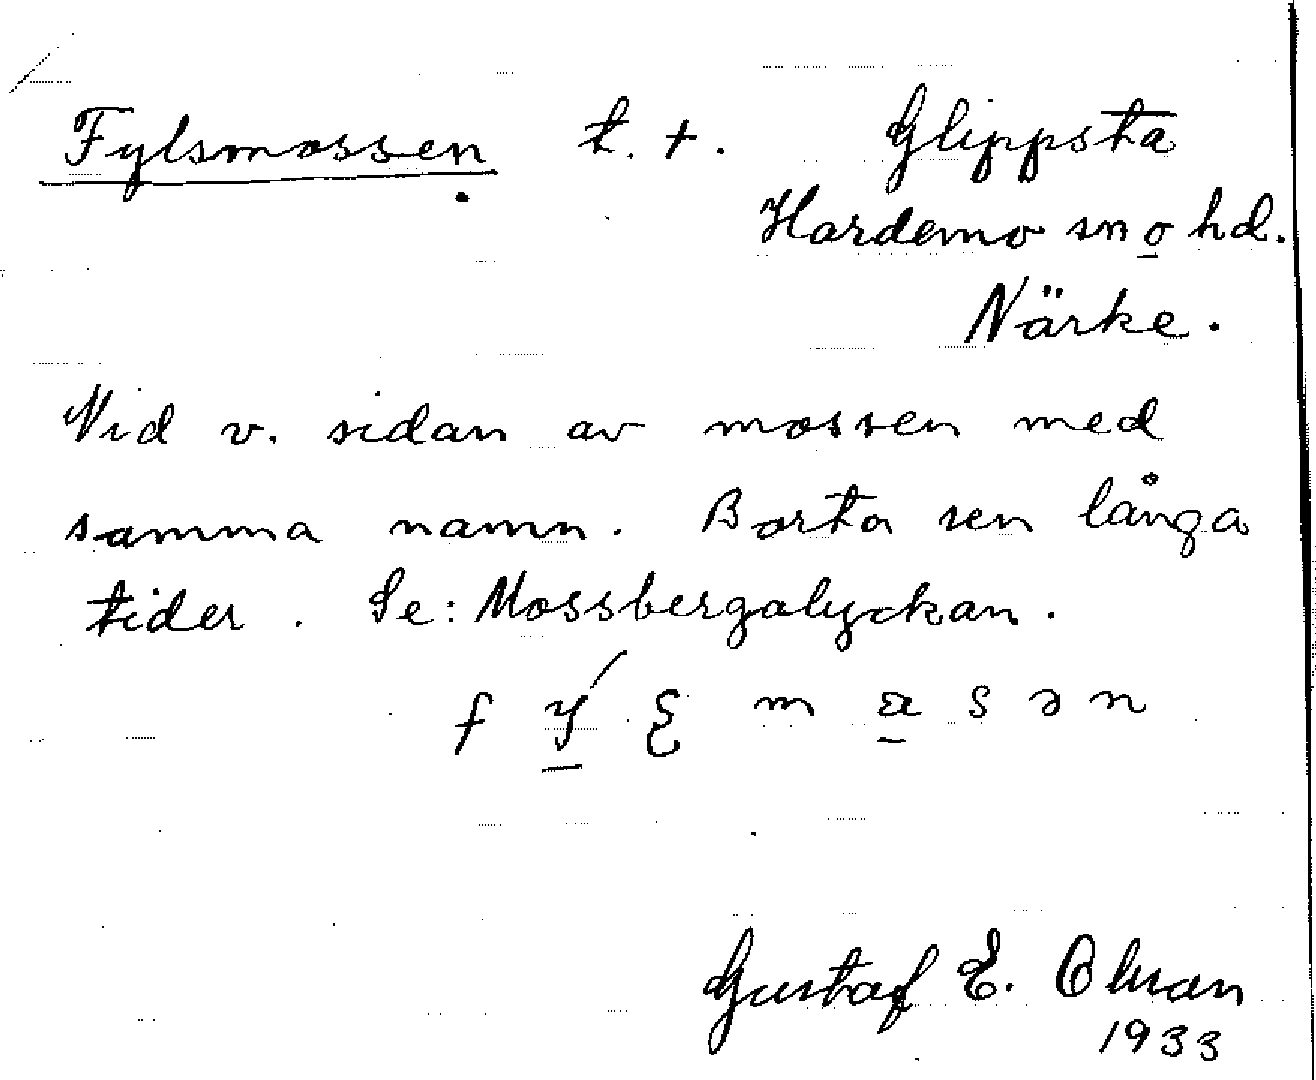 Fylsmossen t. +. Glippsta
Hardemo sn o hd.
Närke.
Vid v. sidan av mossen med
samma namn. Borta sen långa
tider. Se: Mossbergalyckan.
Gustaf E. Olsson
1933